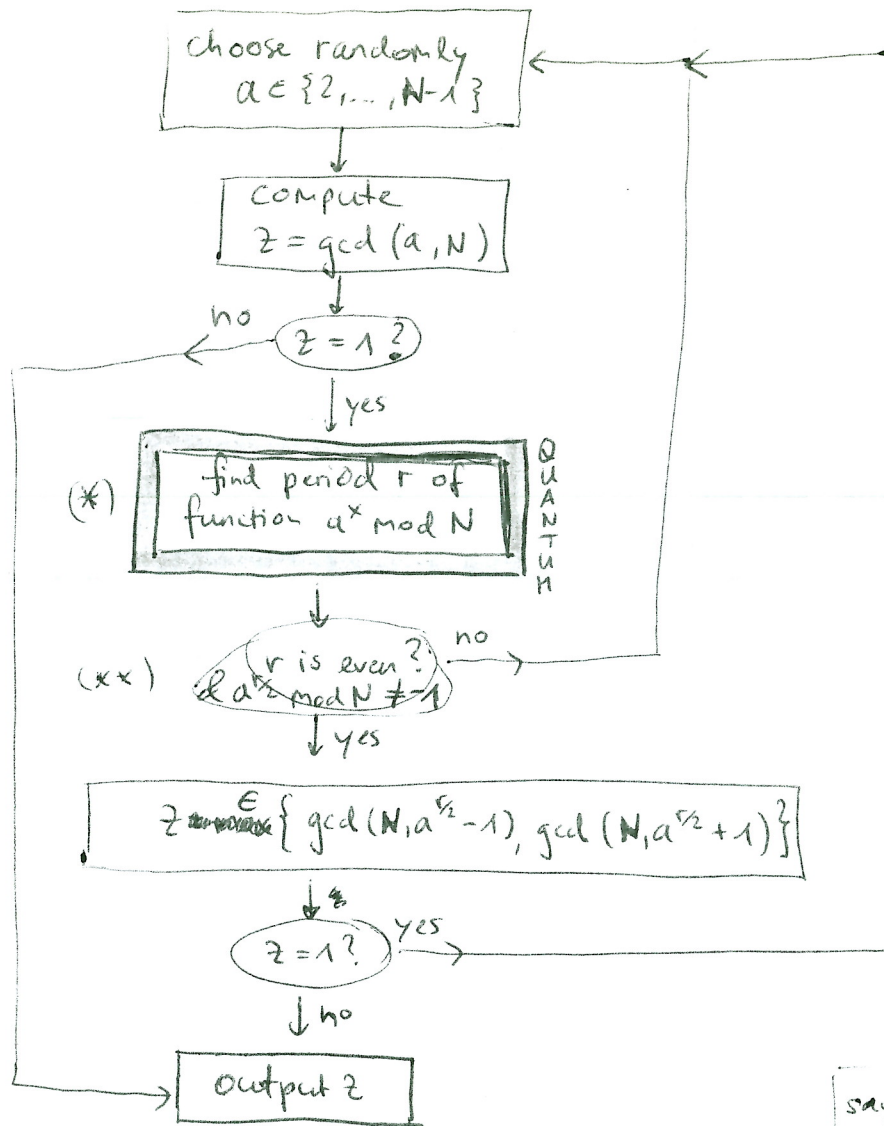 choose randomly
a ∈ {2,...,N-1}
compute
z = gcd (a, N)
no
z = 1?
yes
(*)
find period r of
function a^x mod N
QUANTUM
no
(**)
r is even?
& a^{r/2} mod N ≠ -1
yes
z ∈ { gcd (N, a^{r/2} - 1), gcd (N, a^{r/2} + 1) }
z = 1?
yes
no
output z